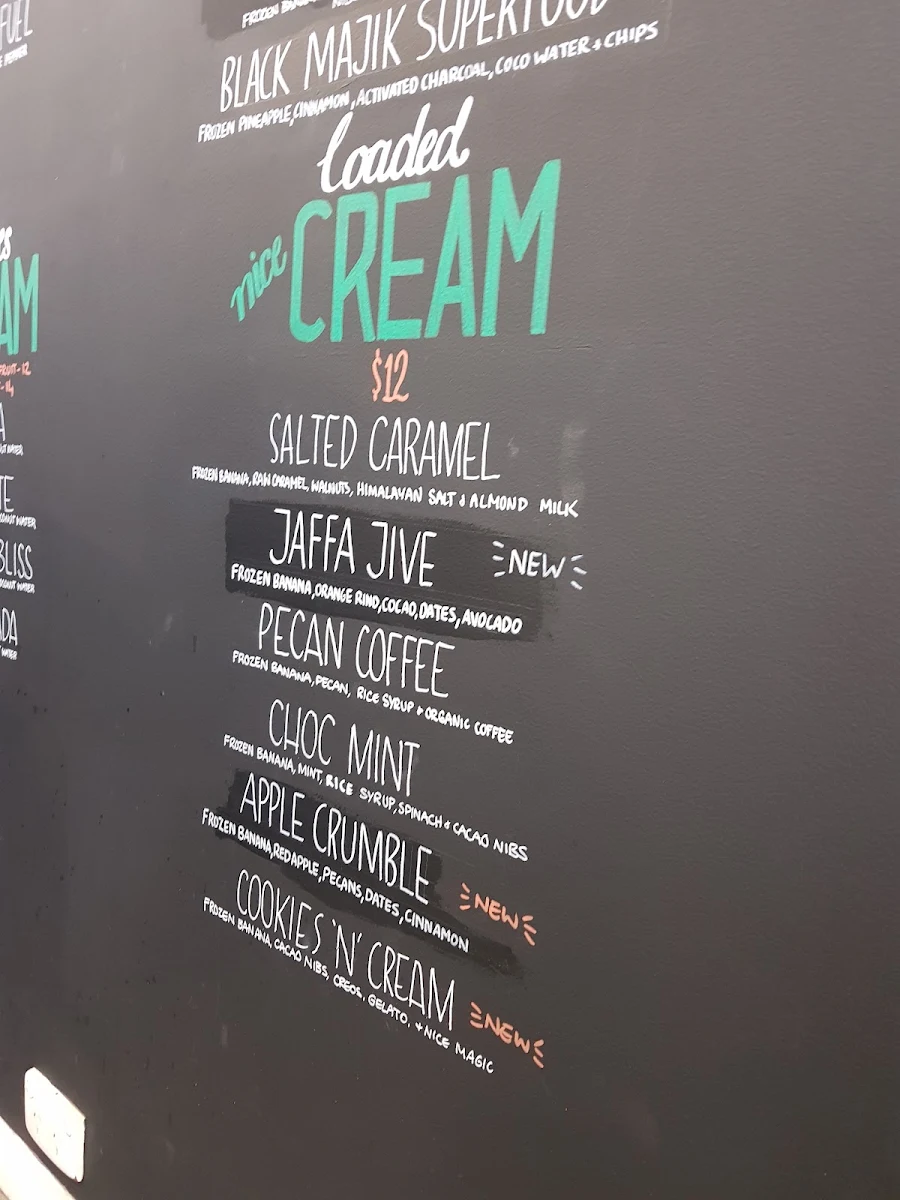 FUEL
FROZEN
BLACK MAJIK SUPERFOOD
FROZEN PINEAPPLE, CINNAMON, ACTIVATED CHARCOAL, COCO WATER + CHIPS
loaded
nice CREAM
$12
SALTED CARAMEL
FROZEN BANANA, RAW CARAMEL, WALNUTS, HIMALAYAN SALT & ALMOND MILK
JAFFA JIVE NEW
FROZEN BANANA, ORANGE RIND, COCAO, DATES, AVOCADO
PECAN COFFEE
FROZEN BANANA, PECAN, RICE SYRUP + ORGANIC COFFEE
CHOC MINT
FROZEN BANANA, MINT, RICE SYRUP, SPINACH & CACAO NIBS
APPLE CRUMBLE NEW
FROZEN BANANA, RED APPLE, PECANS, DATES, CINNAMON
COOKIES 'N' CREAM NEW
FROZEN BANANA, CACAO NIBS, OREOS, GELATO, + NICE MAGIC
AM
BLISS
WATER